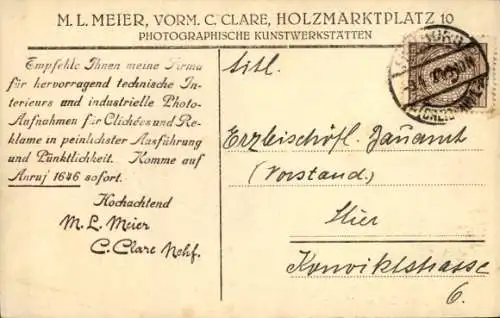 M. L. MEIER, VORM. C. CLARE, HOLZMARKTPLATZ 10
PHOTOGRAPHISCHE KUNSTWERKSTÄTTEN
Empfehle Ihnen meine Firma
für hervorragend technische In-
terieurs und industrielle Photo-
Aufnahmen für Clichées und Re-
klame in peinlichster Ausführung
und Pünktlichkeit. Komme auf
Anruf 1646 sofort.
Hochachtend
M. L. Meier
C. Clare Nchf.
Titl.
Erzbischöfl. Bauamt
(Vorstand.)
Hier
Konviktstrasse
6.